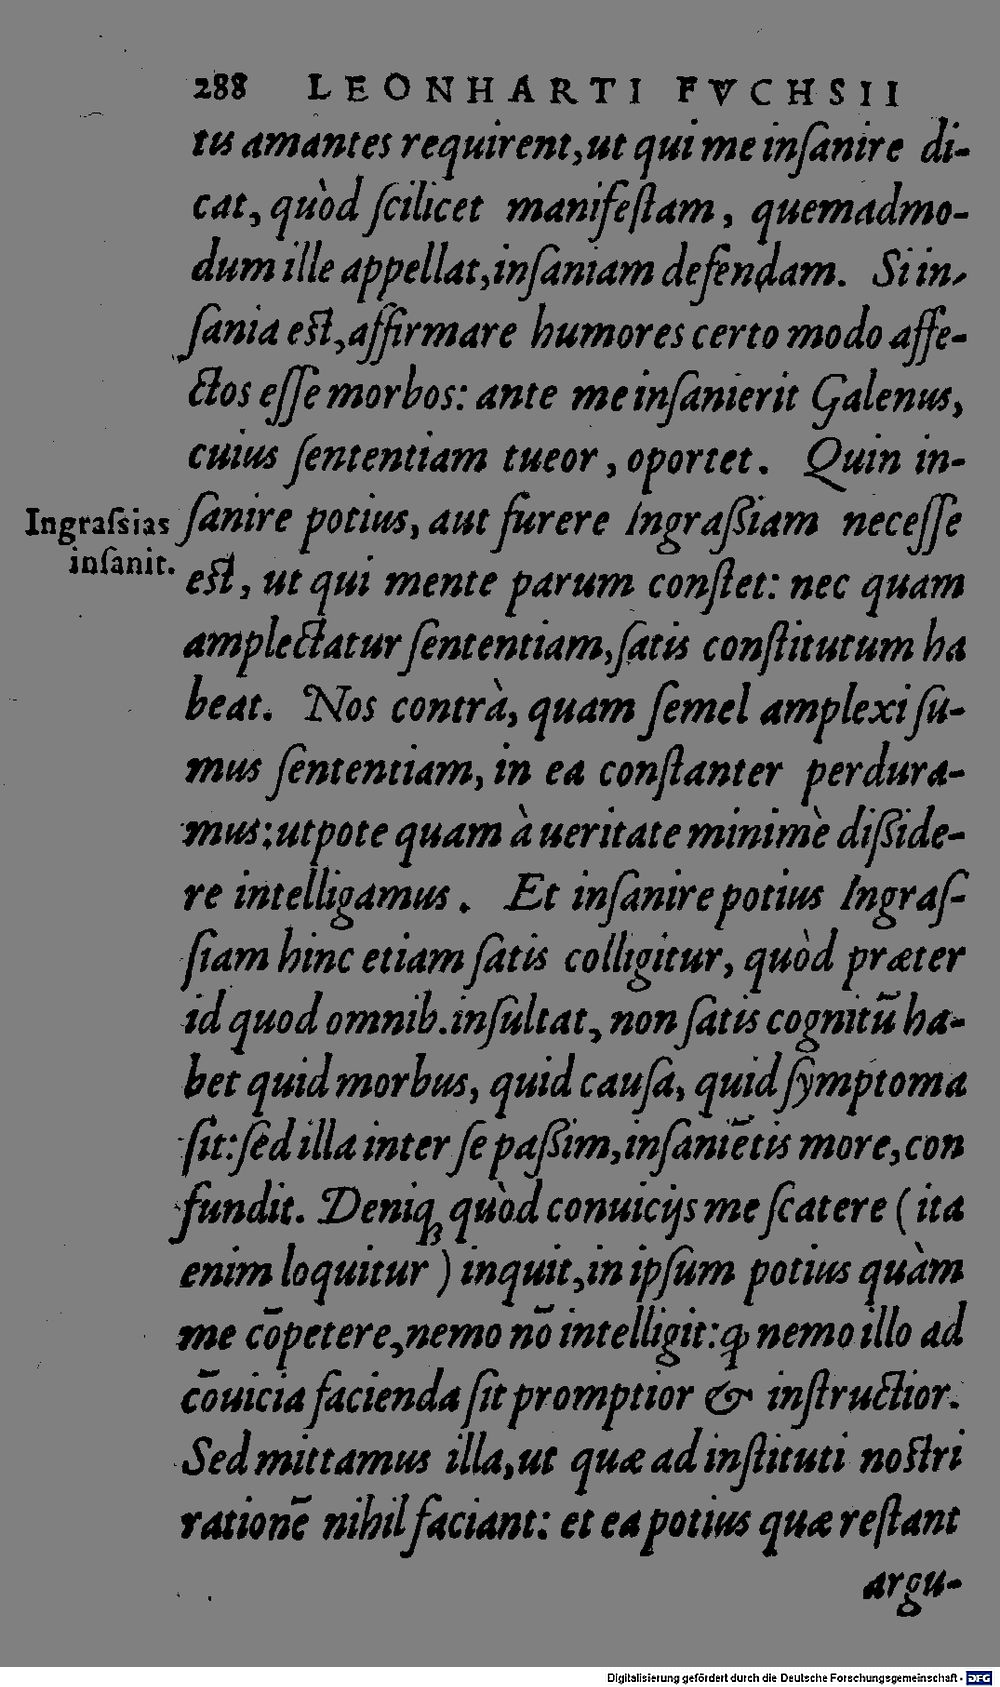 288 LEONHARTI FVCHSII
tis amantes requirent, ut qui me inſanire di-
cat, quòd ſcilicet manifeſtam, quemadmo-
dum ille appellat, inſaniam defendam. Si in-
ſania eſt, affirmare humores certo modo affe-
ctos eſſe morbos: ante me inſanierit Galenus,
cuius ſententiam tueor, oportet. Quin in-
ſanire potius, aut furere Ingraßiam neceſſe
Ingraſsias
inſanit.
eſt, ut qui mente parum conſtet: nec quam
amplectatur ſententiam, ſatis conſtitutum ha
beat. Nos contrà, quam ſemel amplexi ſu-
mus ſententiam, in ea conſtanter perdura-
mus: utpote quam à ueritate minimè dißide-
re intelligamus. Et inſanire potius Ingraſ-
ſiam hinc etiam ſatis colligitur, quòd præter
id quod omnib. inſultat, non ſatis cognitū ha-
bet quid morbus, quid cauſa, quid ſymptoma
ſit: ſed illa inter ſe paßim, inſaniētis more, con
fundit. Deniqꝫ quòd conuicijs me ſcatere (ita
enim loquitur) inquit, in ipſum potius quàm
me cōpetere, nemo nō intelligit: ꝙ nemo illo ad
cōuicia facienda ſit promptior & inſtructior.
Sed mittamus illa, ut quæ ad inſtituti noſtri
rationē nihil faciant: et ea potius quæ reſtant
argu-
Digitalisierung gefördert durch die Deutsche Forschungsgemeinschaft - DFG